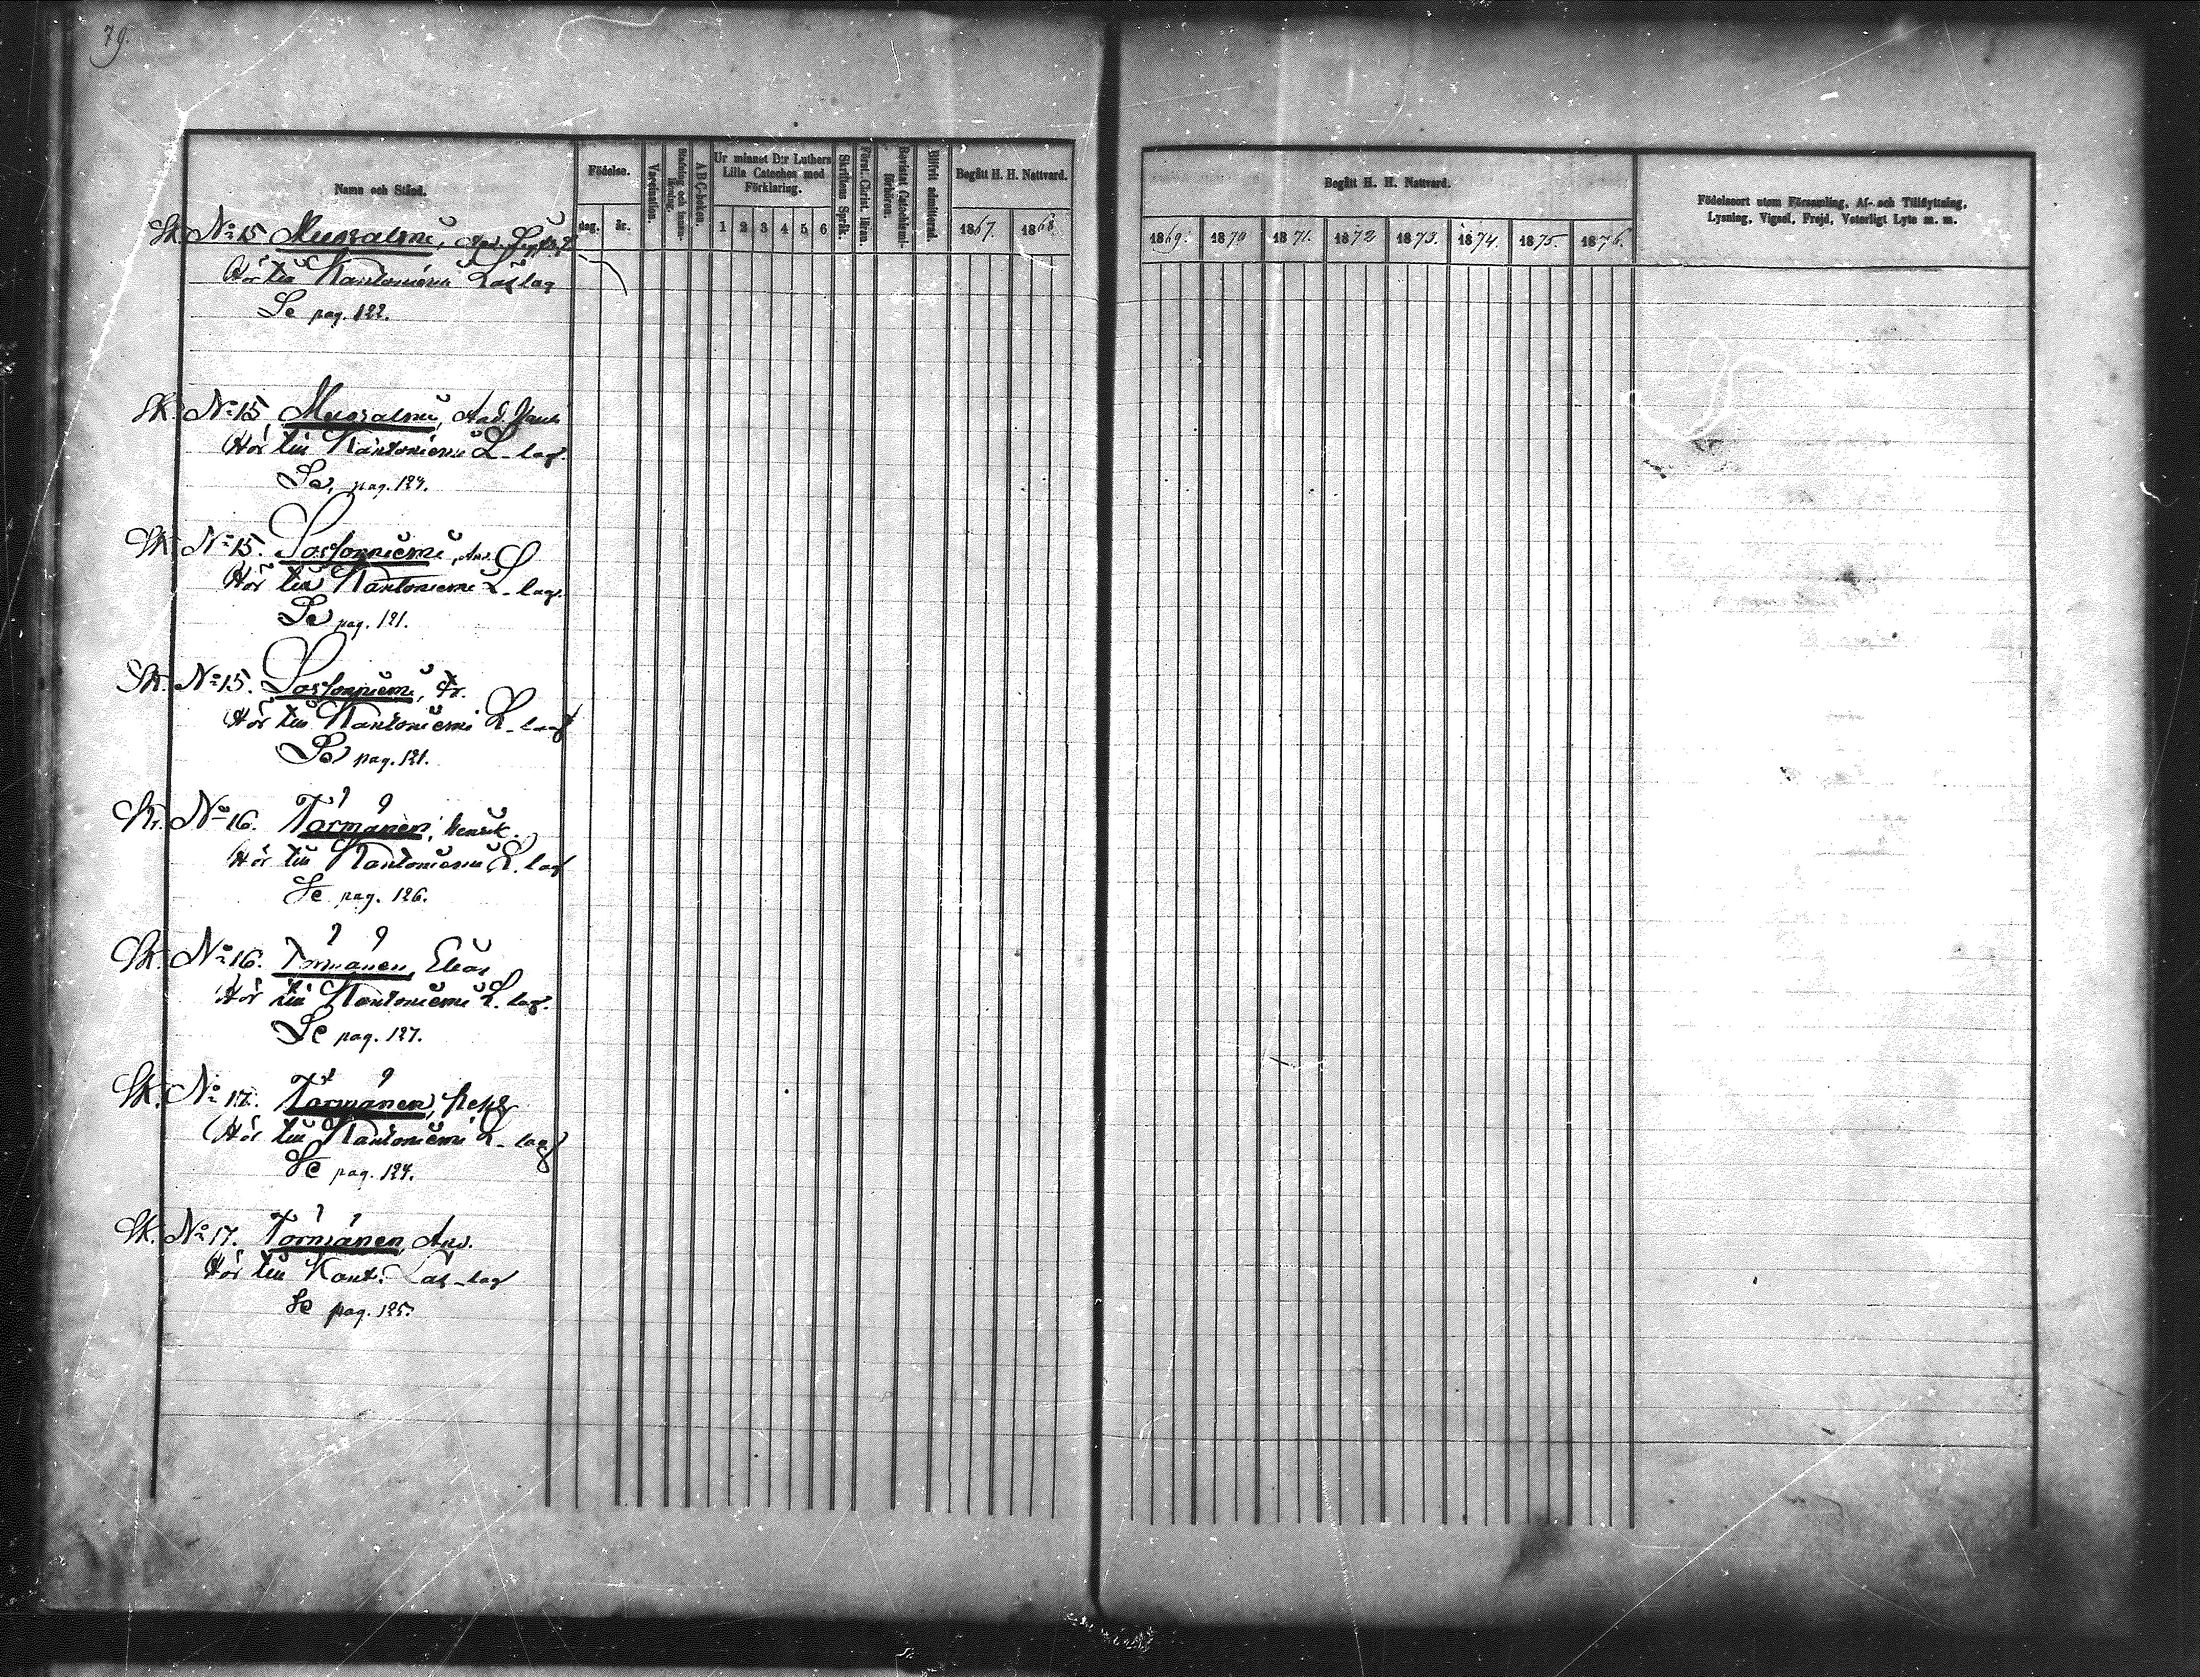 79.
Namn och Stånd.
Födelse.
dag.
år.
Vaccination.
A B C-boken.
Ur minnet D:r Luthers
Lilla Cateches med
Förklaring.
1 2 3 4 5 6
Skriftens Språk.
Först. Christ. läran.
Bevistat Catechismi-
förhören.
Blifvit admitterad.
Begått H. H. Nattvard.
1867. 1868
Begått H. H. Nattvard.
1869. 1870 1871. 1872 1873. 1874. 1875. 1876.
Födelseort utom Församling, Af- och Tillflyttning,
Lysning, Vigsel, Frejd, Veterligt Lyte m. m.
Sk. No 15 Muosalmi,
Hör till Kantoniemi Läslag
Se pag. 122.
Sk. No 15 Muosalmi, And.
Hör till Kantoniemi L-lag.
Se, pag. 124.
Sk. No 15. And.
Hör till Kantoniemi L-lag.
Se pag. 121.
Sk. No 15.
Hör till Kantoniemi L-lag
Se pag. 121.
Sk. No 16. Törmänen, Henrik.
Hör till Kantoniemi L. lag
Se pag. 126.
Sk. No 16. Törmänen, Elias
Hör till Kantoniemi L. lag.
Se pag. 127.
Sk. No 17. Törmänen,
Hör till Kantoniemi L-lag
Se pag. 124.
Sk. No 17. Törmänen, And.
Hör till Kant. Läs-lag
Se pag. 125.